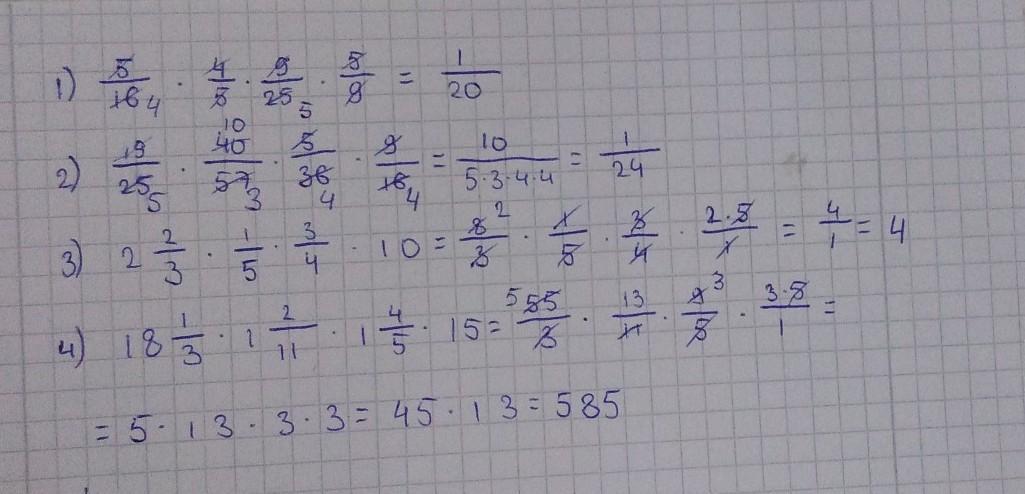 1) 5/16 4 · 4/5 · 9/25 5 · 5/9 = 1/20
2) 19/25 5 · 40 10/57 3 · 5/36 4 · 9/16 4 = 10/5·3·4·4 = 1/24
3) 2 2/3 · 1/5 · 3/4 · 10 = 8 2/3 · 1/5 · 3/4 · 2·5/1 = 4/1 = 4
4) 18 1/3 · 1 2/11 · 1 4/5 · 15 = 5 55/3 · 13/11 · 9 3/5 · 3·5/1 =
= 5 · 13 · 3 · 3 = 45 · 13 = 585